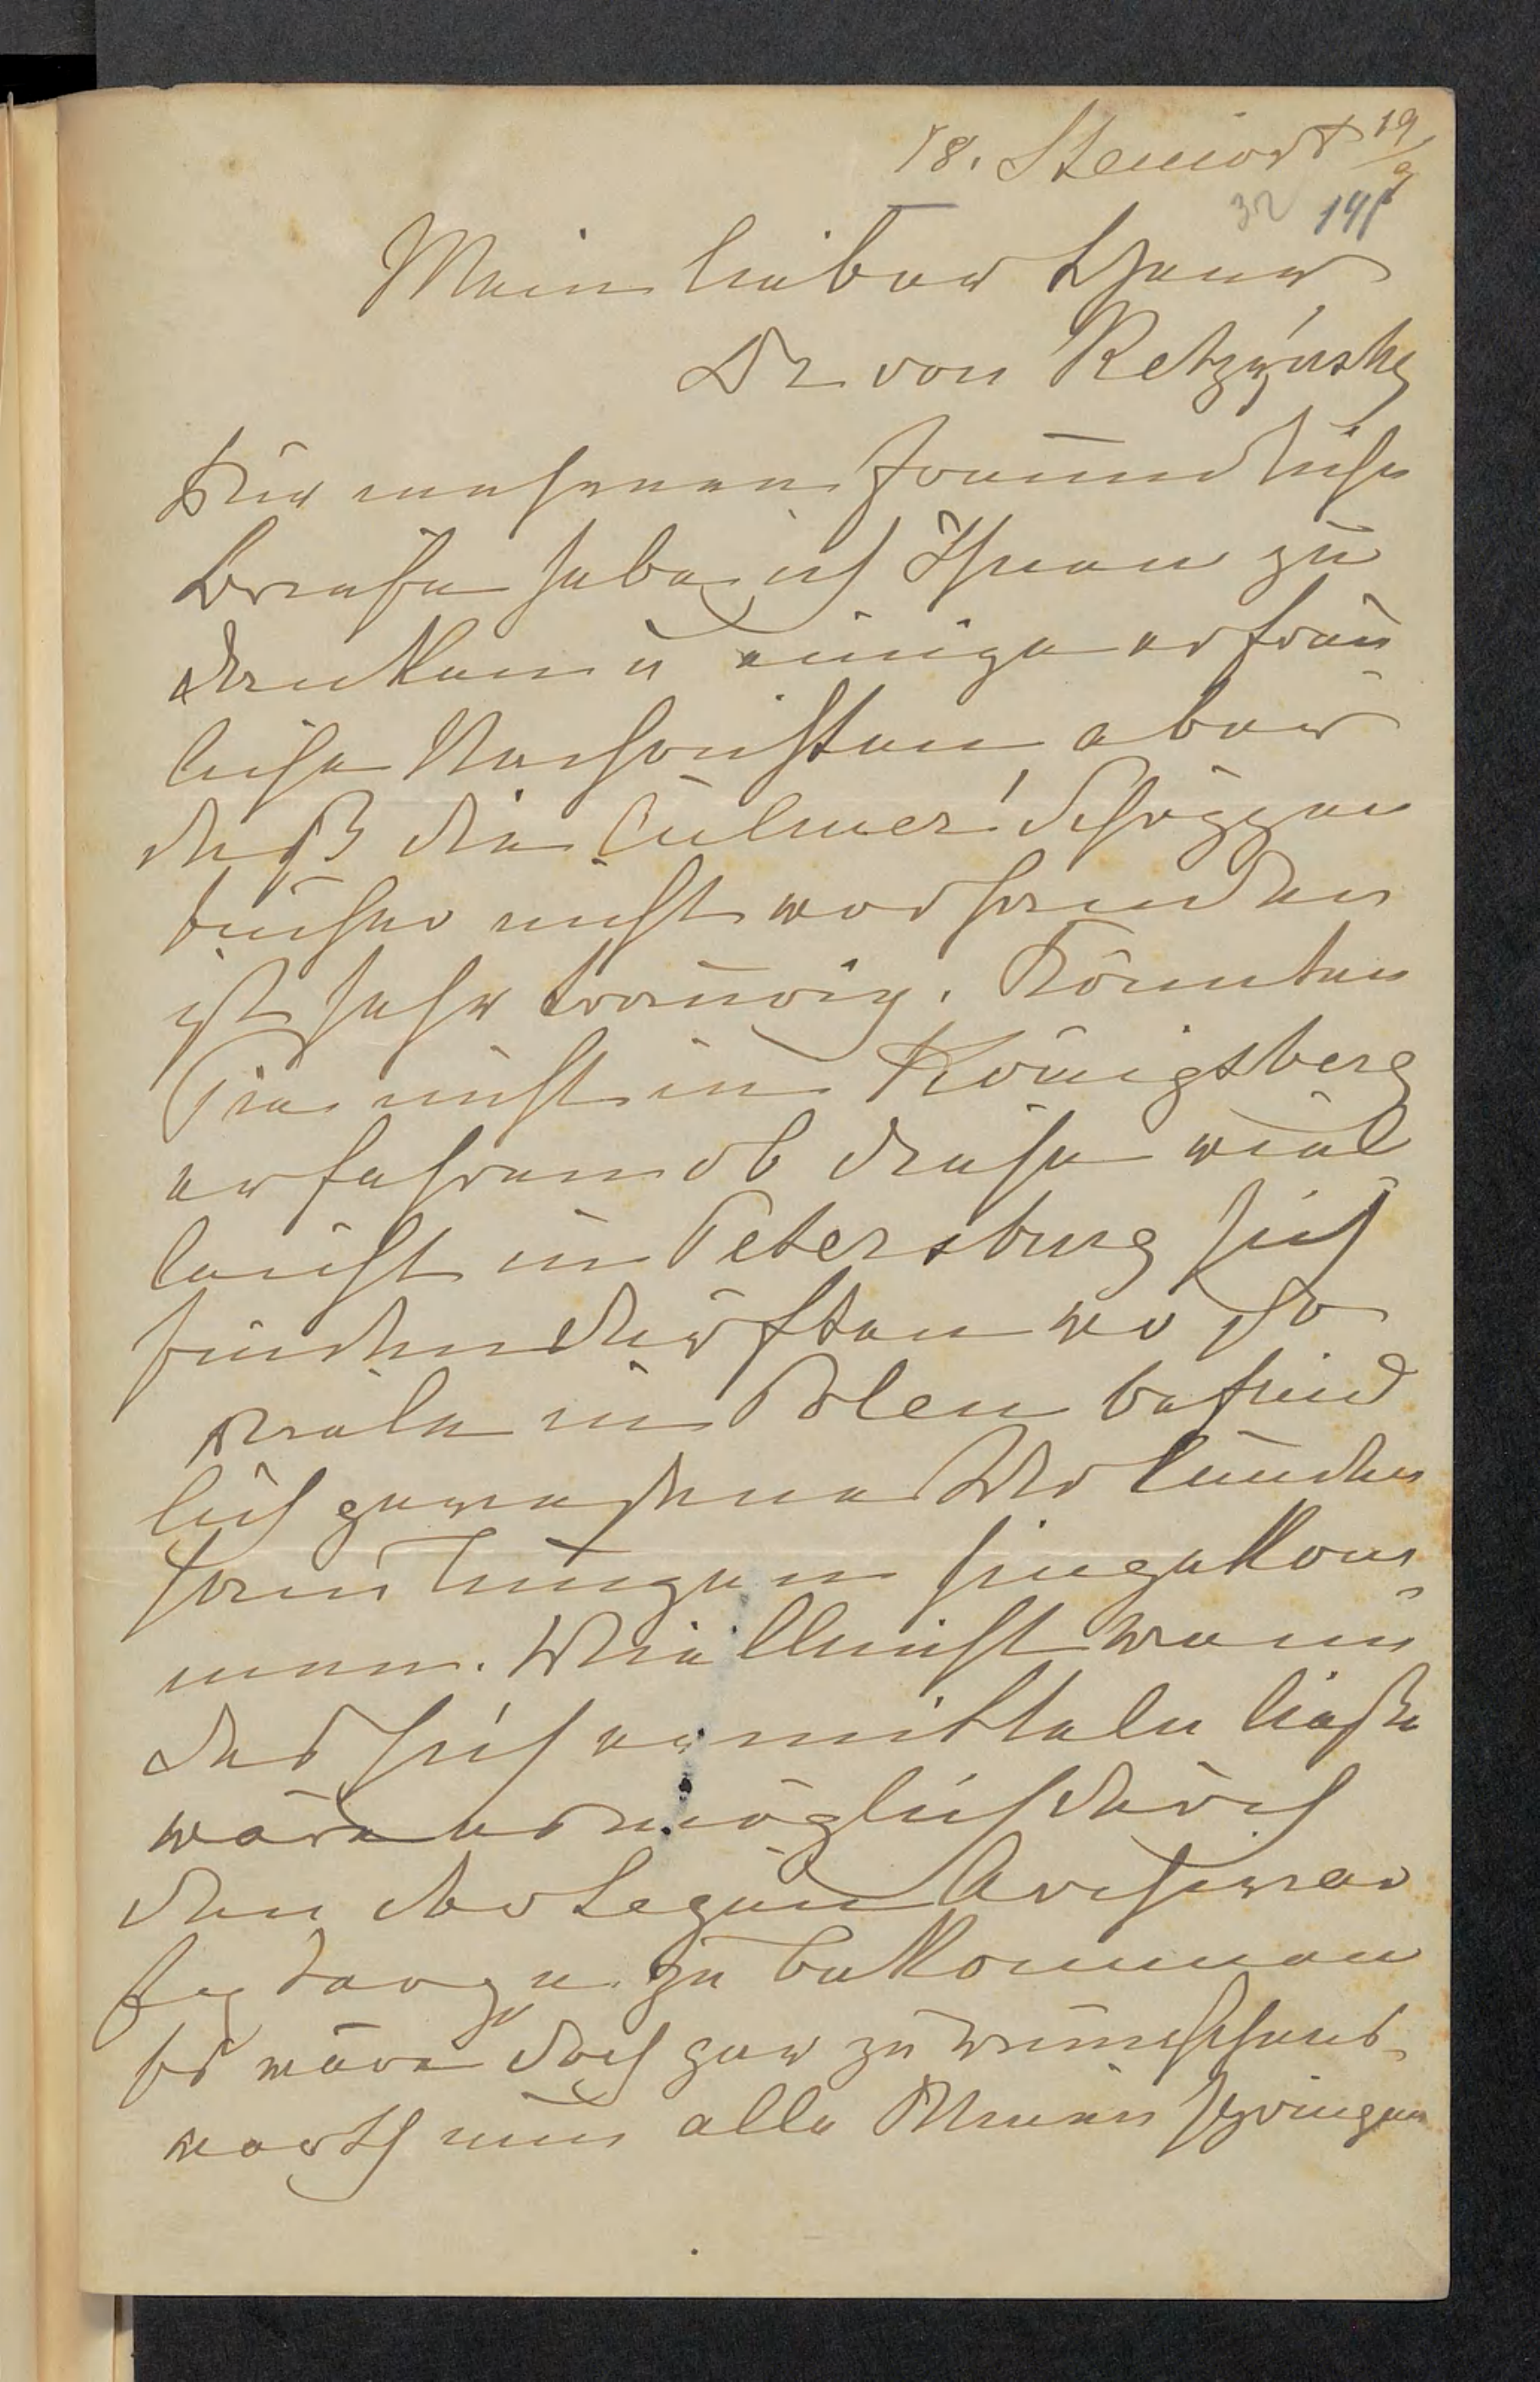 18. Steinort 19/9
32 141
Mein lieber Herr
Dr von Ketrzyńsky
Für mehrere freundliche
Briefe habe ich Ihnen zu
danken u einige erfreu
liche Nachrichten aber
daß die Culmer Schöppen
bücher nicht vorhanden
ist sehr traurig. Könnten
Sie nicht in Königsberg
erfahren ob diese viel
leicht in Petersburg sich
finden dürften wo so
viele in Polen befind
lich gewesene Urkunden
sammlungen hingekom
men. Vielleicht wenn
das sich ermitteln ließe
wäre es möglich durch
den Archivar
zu bekommen
Es wäre doch gar zu wünschens
werth nun alle Minen springen